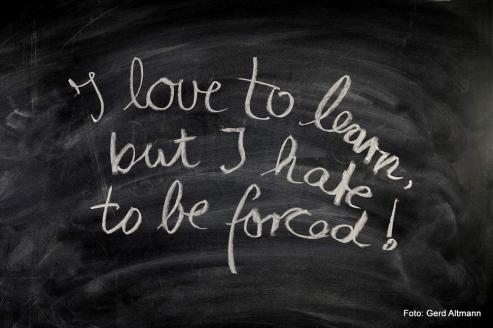 I love to learn,
but I hate
to be forced!
Foto: Gerd Altmann